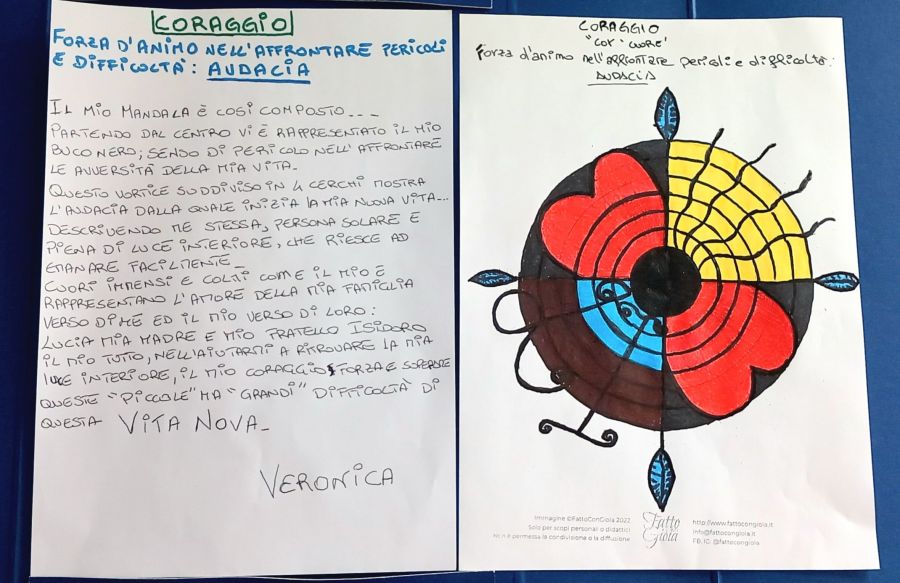 CORAGGIO
FORZA D'ANIMO NELL'AFFRONTARE PERICOLI
E DIFFICOLTÀ: AUDACIA
IL MIO MANDALA È COSÌ COMPOSTO...
PARTENDO DAL CENTRO VI È RAPPRESENTATO IL MIO
BUCO NERO; SENSO DI PERICOLO NELL'AFFRONTARE
LE AVVERSITÀ DELLA MIA VITA.
QUESTO VORTICE SUDDIVISO IN 4 CERCHI MOSTRA
L'AUDACIA DALLA QUALE INIZIA LA MIA NUOVA VITA...
DESCRIVENDO ME STESSA, PERSONA SOLARE E
PIENA DI LUCE INTERIORE, CHE RIESCE AD
EMANARE FACILMENTE.
CUORI IMMENSI E COLMI COME IL MIO E
RAPPRESENTANO L'AMORE DELLA MIA FAMIGLIA
VERSO DI ME ED IL MIO VERSO DI LORO:
LUCIA MIA MADRE E MIO FRATELLO ISIDORO
IL MIO TUTTO, NELL'AIUTARMI A RITROVARE LA MIA
LUCE INTERIORE, IL MIO CORAGGIO FORZA E SUPERARE
QUESTE "PICCOLE" MA "GRANDI" DIFFICOLTÀ DI
QUESTA VITA NOVA.
VERONICA
CORAGGIO
"COR" CUORE"
Forza d'animo nell'affrontare pericoli e difficoltà:
AUDACIA
Immagine ©FattoConGioia 2022
Solo per scopi personali o didattici
Non è permessa la condivisione o la diffusione
Fatto
con
Gioia
http://www.fattocongioia.it
info@fattocongioia.it
FB, IG: @fattocongioia